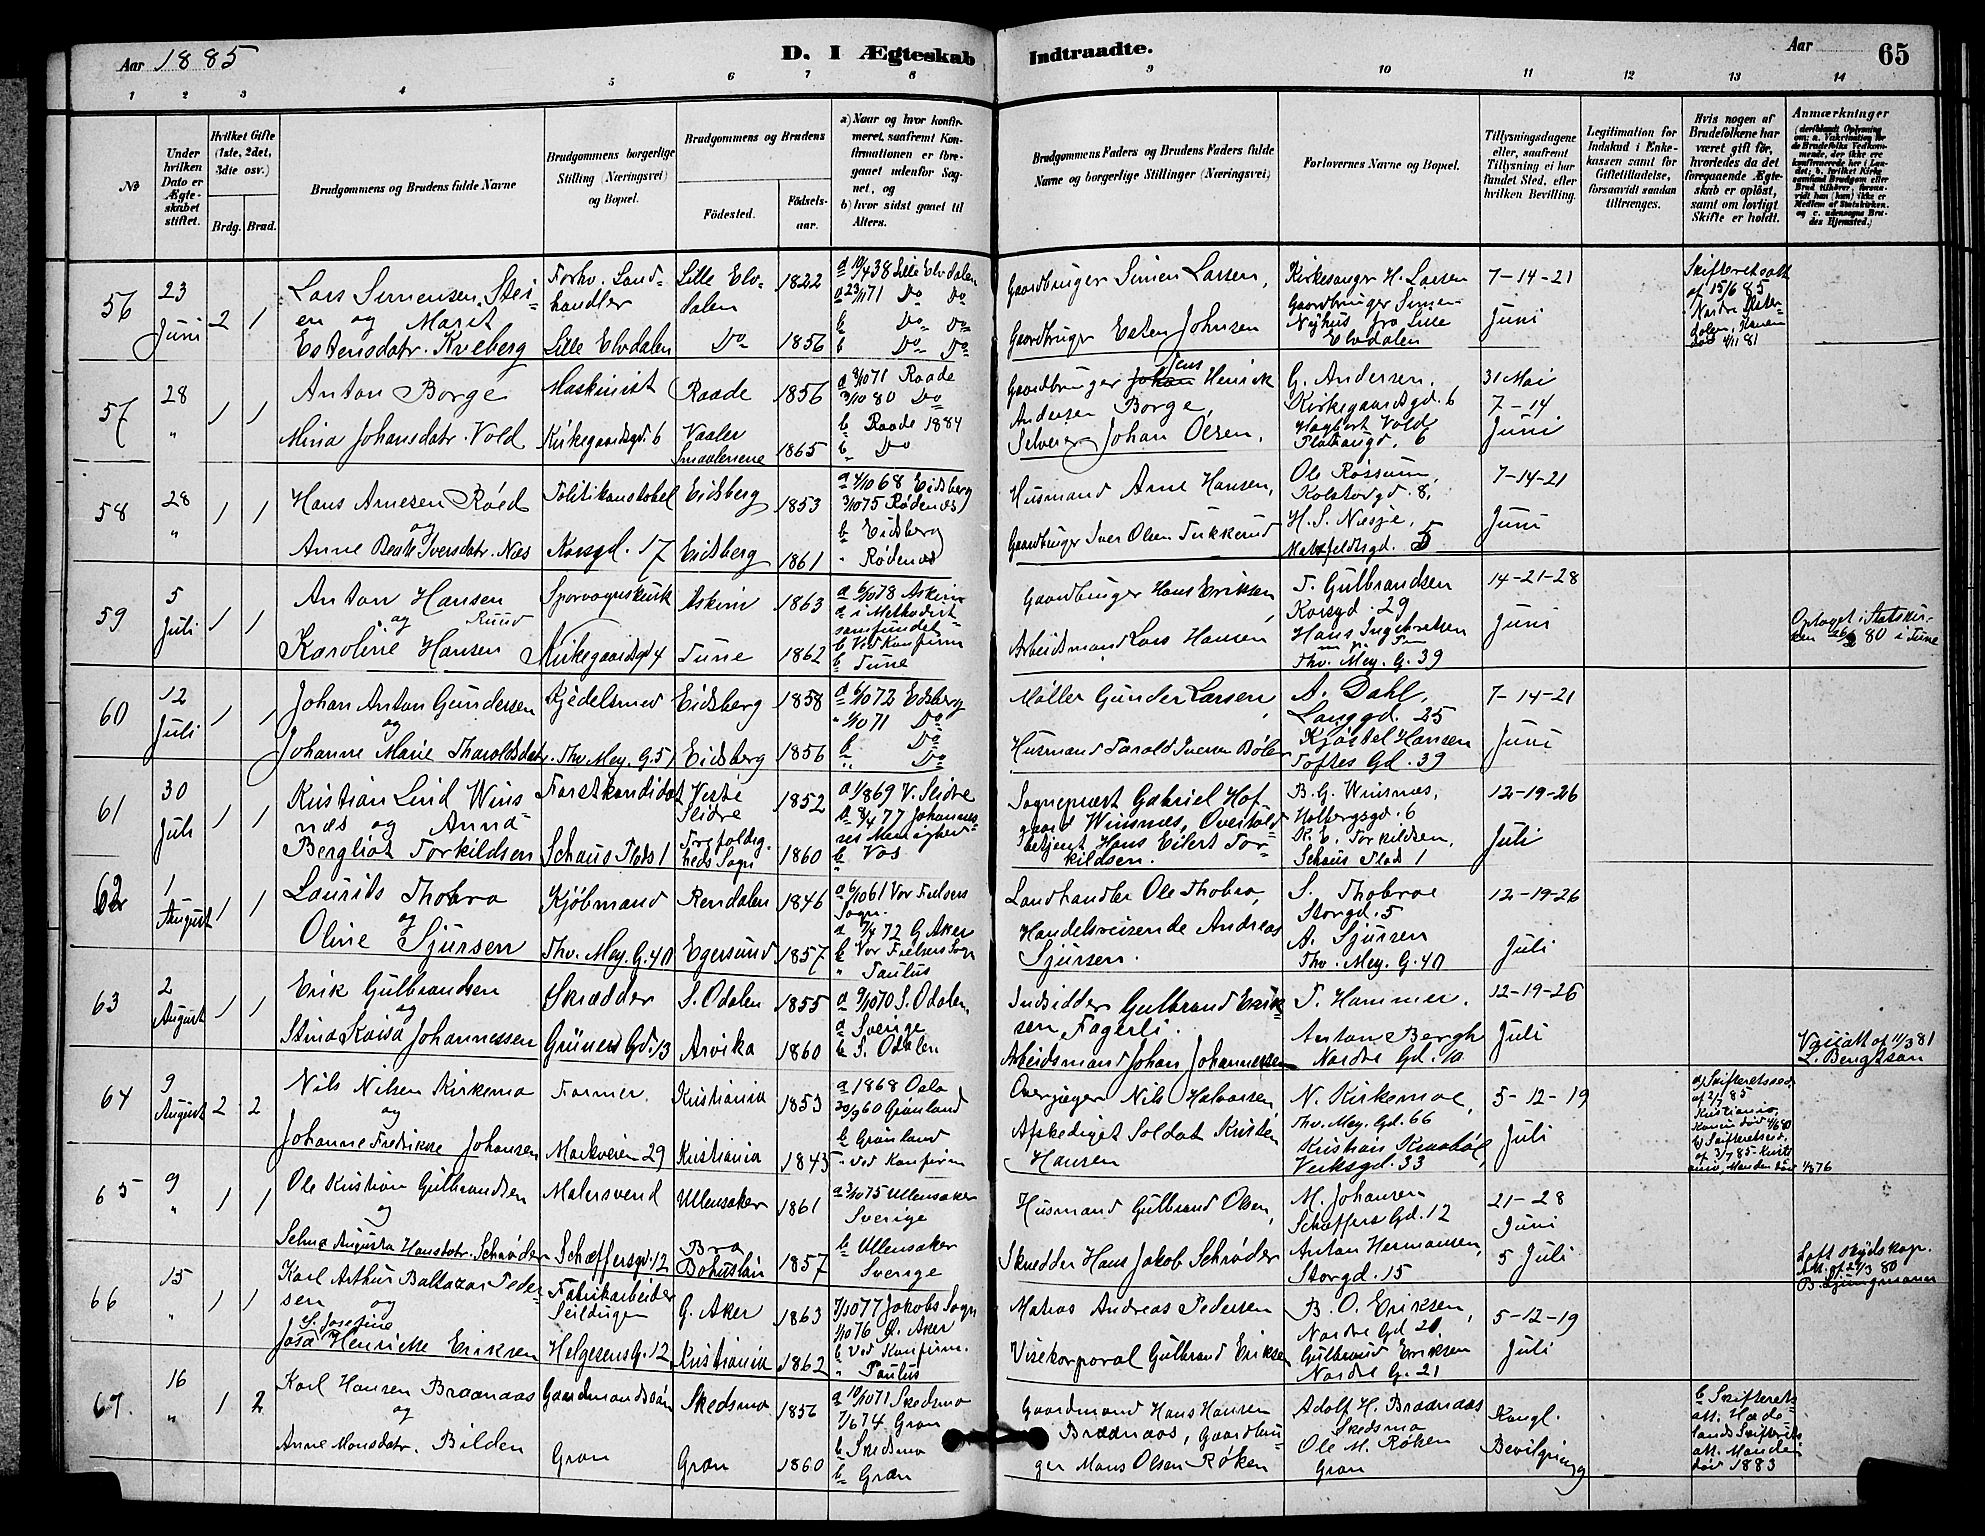 Aar 1885
D. I Ægteskab Indtraadte.
Aar
65
1 2 3 4 5 6 7 8 9 10 11 12 13 14
No
Under hvilken Dato er Ægteskabet stiftet.
Hvilket Gifte (1ste, 2det, 3die osv.)
Brdg. Brud.
Brudgommens og Brudens fulde Navne
Brudgommens borgerlige Stilling (Næringsvei) og Bopæl.
Brudgommens og Brudens
Fødested.
Fødselsaar.
a) Naar og hvor konfirmeret, saafremt Konfirmationen er foregaaet udenfor Sognet, og
b) hvor sidst gaaet til Alters.
Brudgommens Faders og Brudens Faders fulde Navne og borgerlige Stillinger (Næringsvei)
Forlovernes Navne og Bopæl.
Tillysningsdagene eller, saafremt Tillysning ei har fundet Sted, efter hvilken Bevilling.
Legitimation for Indskud i Enkekassen samt for Giftetilladelse, forsaavidt saadan tiltrænges.
Hvis nogen af Brudefolkene har været gift før, hvorledes da det foregaaende Ægteskab er opløst, samt om lovligt Skifte er holdt.
Anmærkninger
56
23 Juni
2 1
Lars Simensen Steien og Marit
Estensdatr. Kveberg
Forhv. Landhandler
Lille Elvdalen
Lille Elvdalen
Do
1822
1856
a 10/4 38 Lille Elvdalen
a 23/11 71 Do Do
b Do Do
b Do Do
Gaardbruger Simen Larsen,
Gaardbruger Esten Johnsen
Kirkesanger H. Larsen
Gaardbruger Simen
Nyhus fra Lille
Elvdalen
7-14-21
Juni
Skifteretsatt
af 15/6 85
57
28 "
1 1
Anton Borge
Mina Johansdatr. Vold
Maskinist
Kirkegaardsgd. 6
Raade
Vaaler
Smaalenene
1856
1865
a 3/10 71 Raade
3/10 80 Do
b Raade 1884
b Do
Gaardbruger Johan Jens Henrick
Andersen Borge,
Selveier Johan Olsen,
G. Andersen,
Kirkegaardsgd. 6
Hagbart Vold
6
31 Mai
7-14
Juni
58
28 "
1 1
Hans Arnesen Røed
og
Anne Beate Iversdatr. Næs
Politikonstabel
Korsgd. 17
Eidsberg
Eidsberg
1853
1861
a 4/10 68 Eidsberg
3/10 75 Rødenæs
b Eidsberg
" Rødenæs
Husmand Arne Hansen,
Gaardbruger Iver Olsen Tukkerud
Ole Røssum,
8,
H. S. Næsje,
5
7-14-21
Juni
59
5 Juli
1 1
Anton Hansen
og Ruud
Karoline Hansen
Sporvognskusk
Kirkegaardsgd 4
Askim
Tune
1863
1862
a 6/10 78 Askim
a i Methodist-
samfundet
b Ved Konfirm
b Tune
Gaardbruger Hans Eriksen,
Arbeidsmand Lars Hansen
T. Gulbrandsen
Korsgd. 29
Hans Ingebretsen
Thv. Mey. G. 39
14-21-28
Juni
Optaget i Statskir-
ken 80 i Tune
60
12 Juli
1 1
Johan Anton Gundersen
og
Johanne Marie Tharoldsdatr.
Kjedelsmed
Thv. Mey. G. 51
Eidsberg
Eidsberg
1858
1856
a 6/10 72 Eidsberg
" 1/10 71 Do
b Do
" Do
Møller Gunder Larsen,
Husmand Tarald Iversen Bøler
A. Dahl,
Langgd. 25
Kjøstel Hansen
Toftes Gd. 39
7-14-21
Juni
61
30 Juli
1 1
Kristian Lind Wins
næs og Anna
Bergliot Torkildsen
Forstkandidat
Schous Plads 1
Vestre
Slidre
Trefoldig-
heds Sogn
1852
1860
a 1/8 69 V. Slidre
a 8/4 77 Johannes-
ses Menighed
b Vos
"
Sogneprest Gabriel Hof
gaard Winsnes, Overtold
betjent Hans Eilert Tor-
kildsen.
B. G. Winsnes,
Holbergsgd. 6
R. E. Torkildsen,
Schous Plads 1
12-19-26
Juli
62
1 August
1 1
Laurits Thobro
og
Oline Sjursen
Kjøbmand
Thv. Mey. G. 40
Rendalen
Egersund
1846
1857
a 6/10 61 Vor Frelsers
Sogn.
a 7/4 72 G. Aker
b Vor Frelsers Sogn
" Paulus
Landhandler Ole Thobro,
Handelsreisende Andreas
Sjursen.
S. Thobroe
Storgd. 5
A. Sjursen
Thv. Mey. G. 40
12-19-26
Juli
63
2 August
1 1
Erik Gulbrandsen
og
Stina Kaisa Johannessen
Skrædder
Grüners Gd. 13
S. Odalen
Arvika
1855
1860
a 9/10 70 S. Odalen
a Sverige
b S. Odalen
Indsidder Gulbrand Erik-
sen Fagerli.
Arbeidsmand Johan Johannessen
T. Hammer,
Anton Bergh
Nordre Gd. 10
12-19-26
Juli
11/3 81
L. Bengtson
64
9 August
2 2
Nils Nilsen Kirkemo
og
Johanne Fredrikke Johansen
Former.
Markveien 29
Kristiania
Kristiania
1853
1843
a 1868 Oslo
20/9 60 Grønland
b Grønland
" Ved Konfirm
Overjæger Nils Halvorsen
Afskediget Soldat Kristen
Hansen
N. Kirkemoe,
Thv. Mey. Gd. 66
Kristian Kraabøl,
Verksgd. 33
5-12-19
Juli
a) Skifteretsatt.
af 2/7 85
Kristiania,
Konen død 4/6 80
b) Skifteretsatt.
af 3/7 85 Kristi
ania, Manden død 1/3 76
65
9 "
1 1
Ole Kristian Gulbrandsen
og
Selma Augusta Hansdatr. Schrøder
Malersvend
Schæffersgd. 12
Ullensaker
Bro
Bohuslän
1861
1857
a 3/10 75 Ullensaker
Sverige
b Ullensaker
Sverige
Husmand Gulbrand Olsen,
Skredder Hans Jakob Schrøder
M. Johansen
Schæffers Gd. 12
Anton Hermansen,
Storgd. 15
21-28
Juni
5 Juli
80
B. Ljungmann
66
15 "
1 1
Karl Arthur Baltazar Peder-
sen og
S. Josefine
Josa Henrikke Eriksen
Fabrikarbeider
Seildugen
Helgesens G. 12
G. Aker
Kristiania
1863
1862
7/10 77 Jakobs Sogn
1/10 76 G. Aker
b Ved Konfirm.
" Paulus
Matias Andreas Pedersen
Visekorporal Gulbrand Eriksen
B. O. Eriksen,
Nordre Gd 20.
Gulbrand Eriksen
Nordre G. 21
5-12-19
Juli
67.
16 "
1 2
Karl Hansen Braanaas
og
Anne Monsdatr. Bilden
Gaardmandssøn
Gran
Skedsmo
Gran
1856
1860
a 10/10 71 Skedsmo
7/6 74 Gran
b Skedsmo
b Gran
Gaardmand Hans Hansen
Braanaas, Gaardbru-
ger Mons Olsen Røken
Adolf H. Braanaas
Skedsmo
Ole M. Røken
Gran
Kongl.
Bevilgning
b Skifterets-
att. Hade-
lands Skifterets
att. Manden
død 1883